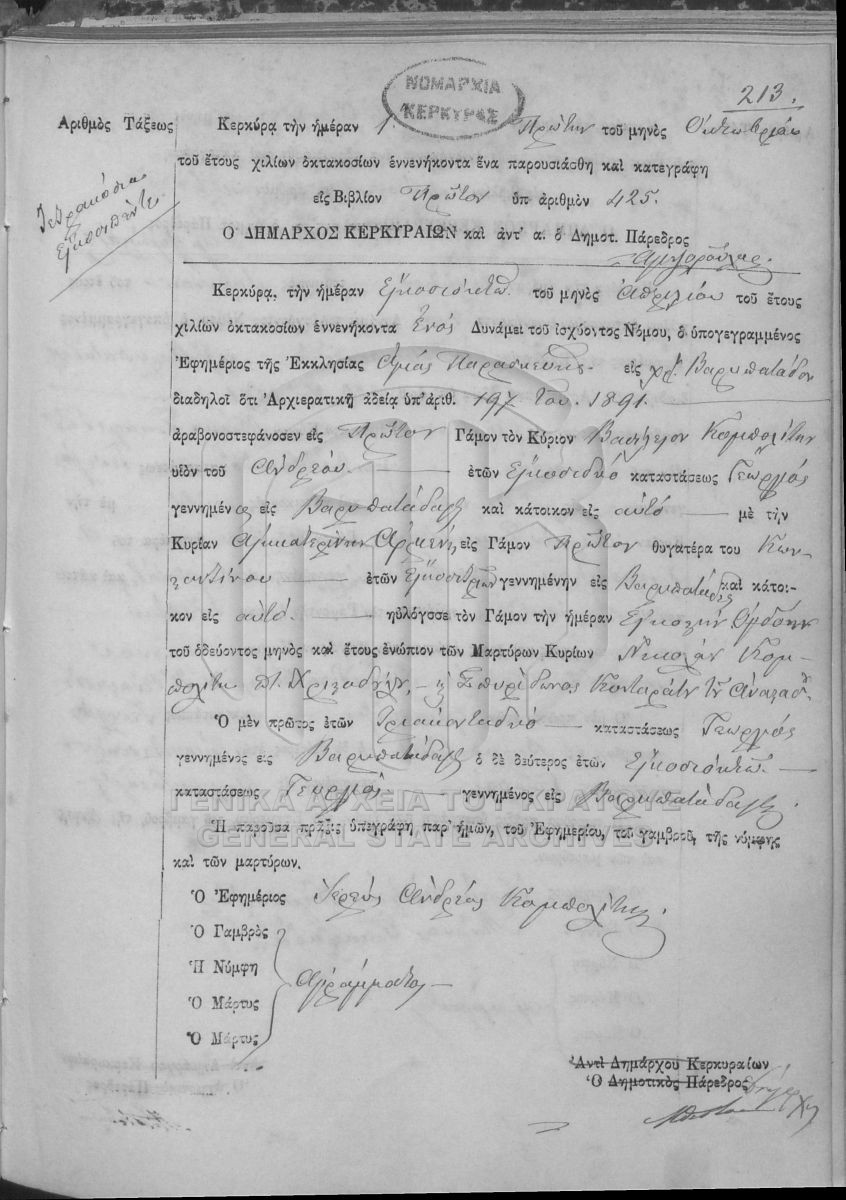 ΝΟΜΑΡΧΙΑ
ΚΕΡΚΥΡΑΣ
213.
Ἀριθμὸς Τάξεως
Τετρακόσια
Εἴκοσιπέντε
Κερκύρᾳ τὴν ἡμέραν 1. Πρώτην τοῦ μηνὸς Ὀκτωβρίου
τοῦ ἔτους χιλίων ὀκτακοσίων ἐννενήκοντα ἕνα παρουσιάσθη καὶ κατεγράφη
εἰς Βιβλίον Πρῶτον ὑπ ἀριθμὸν 425.
Ο ΔΗΜΑΡΧΟΣ ΚΕΡΚΥΡΑΙΩΝ καὶ ἀντ' α. ὁ Δημοτ. Πάρεδρος
Κερκύρᾳ, τὴν ἡμέραν Εἴκοσιὀκτώ τοῦ μηνὸς Ἀπριλίου τοῦ ἔτους
χιλίων ὀκτακοσίων ἐννενήκοντα Ἑνός Δυνάμει τοῦ ἰσχύοντος Νόμου, ὁ ὑπογεγραμμένος
Ἐφημέριος τῆς Ἐκκλησίας Ἁγίας Παρασκευῆς εἰς χρ. Βαρυπατάδων
διαδηλοῖ ὅτι Ἀρχιερατικῇ ἀδείᾳ ὑπ' ἀριθ. 197 τοῦ 1891.
ἀραβονοστεφάνοσεν εἰς Πρῶτον Γάμον τὸν Κύριον Βασίλειον Κομπολίτην
υἱὸν τοῦ Ἀνδρέου ἐτῶν Εἴκοσιδυό καταστάσεως Γεωργός
γεννημένος εἰς Βαρυπατάδαις καὶ κάτοικον εἰς αὐτό μὲ τὴν
Κυρίαν Αἰκατερίνην Ἀρμένη εἰς Γάμον Πρῶτον θυγατέρα του Κων-
σταντίνου ἐτῶν Εἴκοσιτριῶν γεννημένην εἰς Βαρυπατάδες καὶ κάτοι-
κον εἰς αὐτό. ηὐλόγσσε τὸν Γάμον τὴν ἡμέραν Εἰκοστὴν Ὀγδόην
τοῦ ὁδεύοντος μηνὸς καὶ ἔτους ἐνώπιον τῶν Μαρτύρων Κυρίων Νικολάν Κομ-
πολίτη
Σπυρίδωνος
Ὁ μὲν πρῶτος ἐτῶν Τριάκονταδυό καταστάσεως Γεωργός
γεννημένος εἰς Βαρυπατάδαις ὁ δὲ δεύτερος ἐτῶν Εἴκοσιὀκτώ
καταστάσεως Γεωργός γεννημένος εἰς Βαρυπατάδαις.
ΓΕΝΙΚΑ ΑΡΧΕΙΑ ΤΟΥ ΚΡΑΤΟΥΣ
GENERAL STATE ARCHIVES
Ἡ παροῦσα πρᾶξις ὑπεγράφη παρ' ἡμῶν, τοῦ Ἐφημερίου, τοῦ γαμβροῦ, τῆς νύμφης
καὶ τῶν μαρτύρων.
Ὁ Ἐφημέριος Ἱερεύς Ἀνδρέας Κομπολίτης
Ὁ Γαμβρὸς
Ἡ Νύμφη
Ἀγράμματοι
Ὁ Μάρτυς
Ὁ Μάρτυς
Ἀντὶ Δημάρχου Κερκυραίων
Ὁ Δημοτικὸς Πάρεδρος